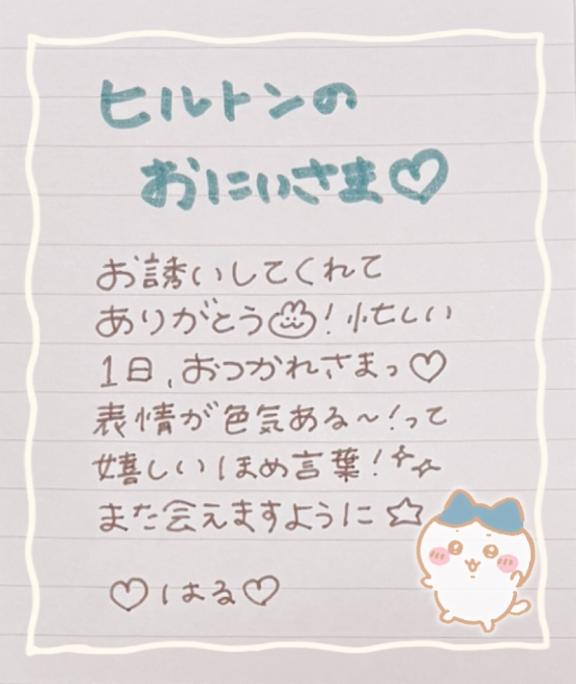 ヒルトンの
おにいさま♡
お誘いしてくれて
ありがとう！忙しい
1日、おつかれさまっ♡
表情が色気ある〜！って
嬉しいほめ言葉！
また会えますように☆
♡はる♡